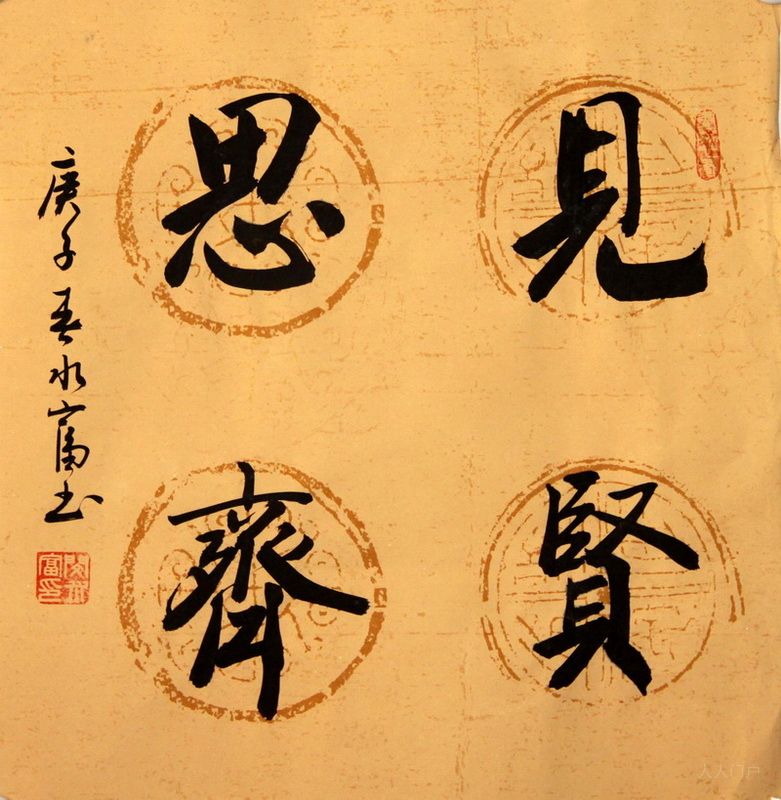 見賢
思齊
庚子春永富书
人人门户